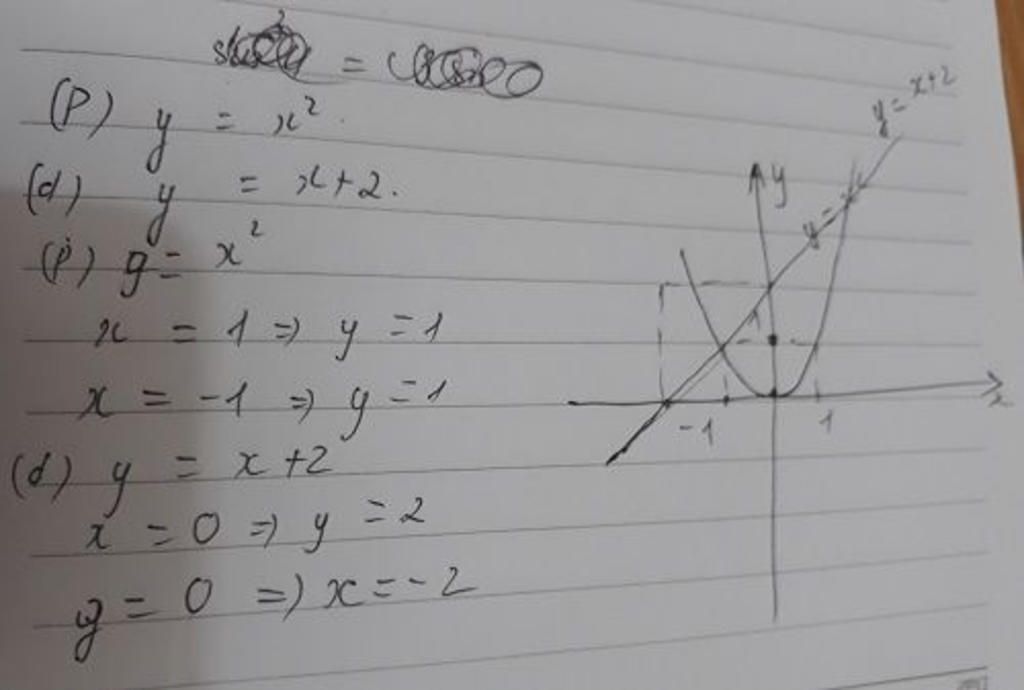 =
(P) y = x².
(d) y = x+2.
(P) y = x²
x = 1 => y = 1
x = -1 => y = 1
(d) y = x+2
x = 0 => y = 2
y = 0 => x = -2
y = x+2
y
y =
1
-1
1
x